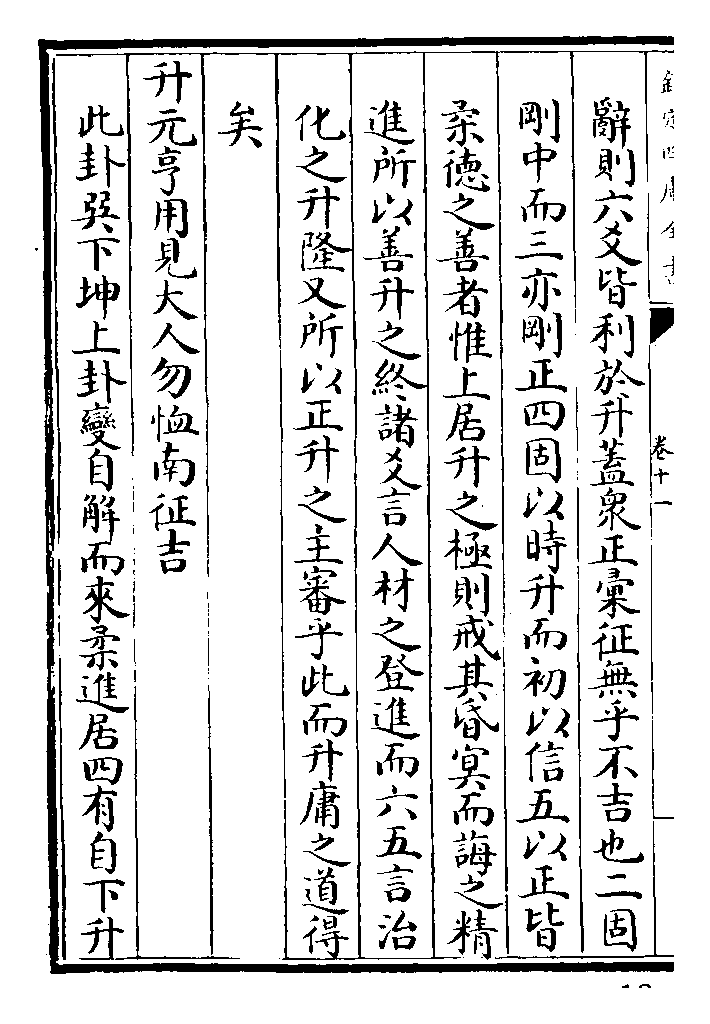 欽定四庫全書
卷十一
辭則六爻皆利於升蓋衆正彙征無乎不吉也二固
剛中而三亦剛正四固以時升而初以信五以正皆
柔德之善者惟上居升之極則戒其昏冥而誨之精
進所以善升之終諸爻言人材之登進而六五言治
化之升隆又所以正升之主審乎此而升庸之道得
矣
升元亨用見大人勿恤南征吉
此卦巽下坤上卦變自解而來柔進居四有自下升